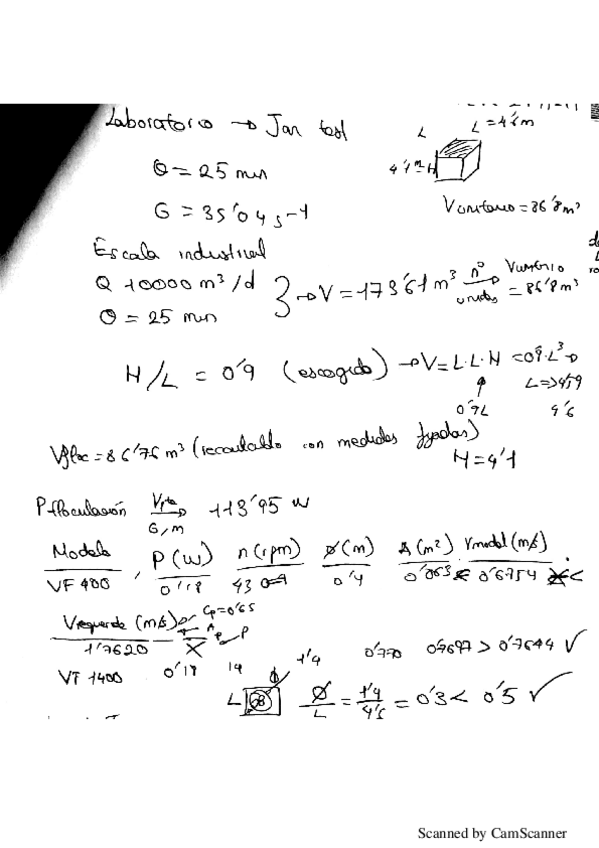 Laboratorio → Jar test
L L = 4'6m
θ = 25 min
4'1 m = H
G = 35'04 s-1
V unitario = 86'8 m³
Escala industrial
Q 10000 m³/d
θ = 25 min
} → V = 173'61 m³ nº unidades → V unitario = 86'8 m³
H/L = 0'9 (escogido) → V = L·L·H = 0'9·L³ →
0'9L
L = 4'59
4'6
Vfloc = 86'76 m³ (recalculado con medidas fijadas)
H = 4'1
P floculación Vfloc G, M → 113'95 W
Modelo P (W) n (rpm) ∅ (m) A (m²) V model (m/s)
VF 400 0'18 43 0'4 0'063 0'6754 <
V requerida (m/s) CD = 0'65
1'7620 X
VF 1400 0'18 19 1'4 0'770 0'7697 > 0'7644 ✓
L ∅/L = 1'4/4'6 = 0'3 < 0'5 ✓
Scanned by CamScanner